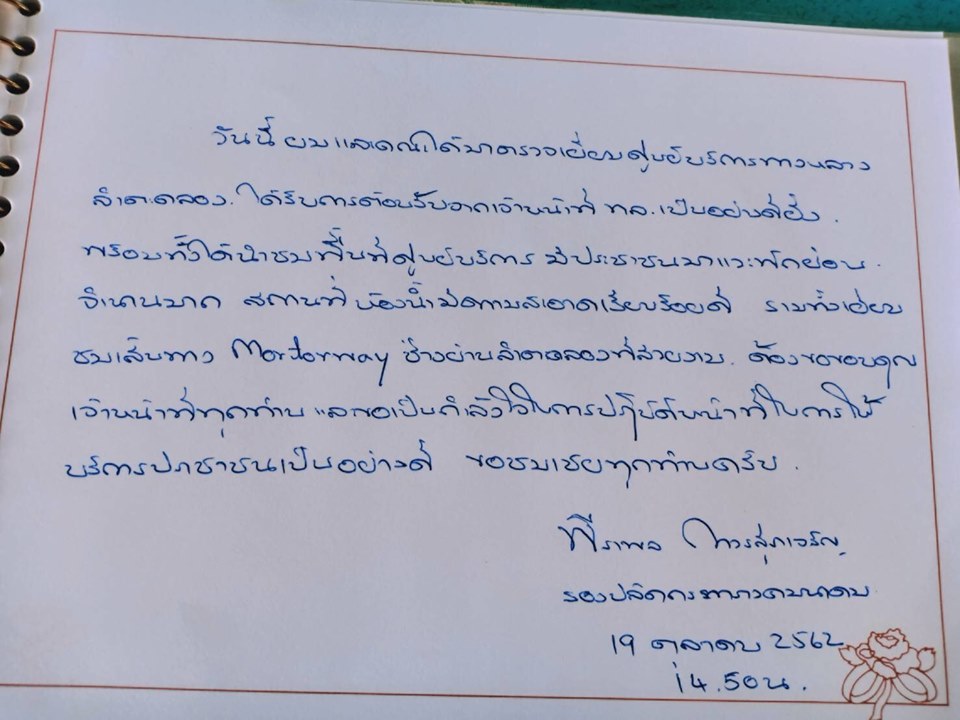 วันนี้ ผมและคณะได้มาตรวจเยี่ยมศูนย์บริการทางหลวง
ลำตะคอง. ได้รับการต้อนรับจากเจ้าหน้าที่ ทล. เป็นอย่างดียิ่ง.
พร้อมทั้งได้นำชมพื้นที่ศูนย์บริการ มีประชาชนมาแวะพักผ่อน.
จำนวนมาก สถานที่ ห้องน้ำมีความสะอาดเรียบร้อยดี รวมทั้งเยี่ยม
ชมเส้นทาง Mortorway ช่วงผ่านลำตะคองที่สวยงาม. ต้องขอขอบคุณ
เจ้าหน้าที่ทุกท่าน และขอเป็นกำลังใจในการปฏิบัติหน้าที่ในการให้
บริการประชาชนเป็นอย่างดี ขอชมเชยทุกท่านครับ.
พีรพล ถาวรสุภเจริญ
รองปลัดกระทรวงคมนาคม
19 ตุลาคม 2562
14.50น.